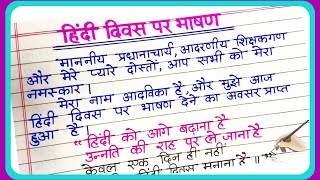 हिंदी दिवस पर भाषण
"माननीय प्रधानाचार्य, आदरणीय शिक्षकगण
और मेरे प्यारे दोस्तों, आप सभी को मेरा
नमस्कार।
मेरा नाम आदविका है, और मुझे आज
हिंदी दिवस पर भाषण देने का अवसर प्राप्त
हुआ है।
"हिंदी को आगे बढ़ाना है
उन्नति की राह पर ले जाना है
केवल एक दिन ही नहीं
हिंदी दिवस मनाना है॥